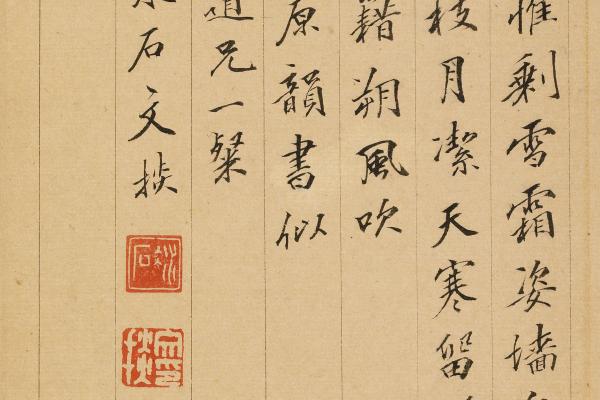 惟剩雪霜姿墻
枝月潔天寒留
藉朔風吹
原韻書似
道兄一粲
石文棪